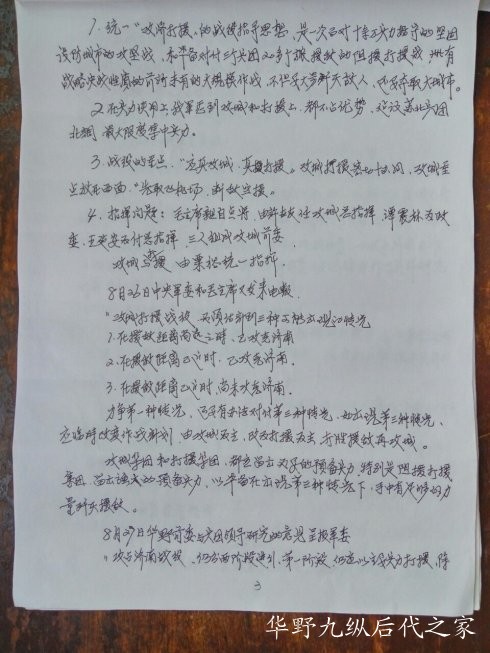 1. 统一"攻济打援"的战役指导思想，是一次占对十余万实力据守的坚固
设防城市的攻坚战，和准备对付三个兵团20多个旅援敌的阻援打援战，此有
战略决战性质的前所未有的大规模作战，不但要大量歼灭敌人，也要夺取大城市。
2. 在兵力使用上，我军在到攻城和打援上，都不占优势，建议苏北兵团
北调，最大限度集中兵力。
3. 战役的重点，"攻其攻城，真打援"。攻城打援密切协同，攻城重
点放在西面，"夺取飞机场，断敌空援。
4. 指挥问题：毛主席亲自点将，由许世友任攻城总指挥，谭震林为政
委，王建安为付总指挥，三人组成攻城前委。
攻城与打援由粟裕统一指挥。
8月26日中央军委和毛主席又发来电报
"攻城打援战役，必须估计到三种可能出现的情况
1. 在援敌距离尚远之时，已攻克济南
2. 在援敌距离已近时，已攻克济南。
3. 在援敌距离已近时，尚未攻克济南。
力争第一种情况，又要有办法对付第三种情况，如出现第三种情况，
应临时改变作战计划，由攻城为主，改为打援为主，打胜援敌再攻城。
攻城集团和打援集团，都应留出必要的预备兵力，特别是阻援打援
集团，留出强大的预备兵力，以准备在出现第三种情况下，手中有足够的力
量歼灭援敌。
8月27日华野前委与兵团领导研究的意见呈报军委
"攻占济南战役，仍分两阶段进行，第一阶段，仍应以主要兵力打援，阵
3
华野九纵后代之家